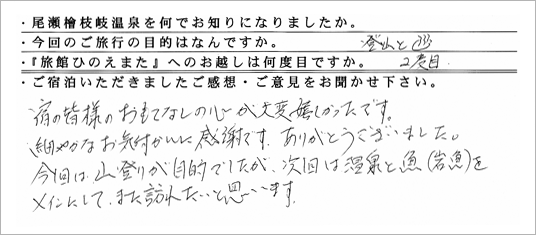 ・尾瀬檜枝岐温泉を何でお知りになりましたか。
・今回のご旅行の目的はなんですか。 登山と
・『旅館ひのえまた』へのお越しは何度目ですか。 2度目.
・ご宿泊いただきましたご感想・ご意見をお聞かせ下さい。
宿の皆様のおもてなしの心が大変嬉しかったです。
細やかなお気付かいに感謝です。ありがとうございました。
今回は、山登りが目的でしたが、次回は温泉と魚(岩魚)を
メインにして、また訪れたいと思います。